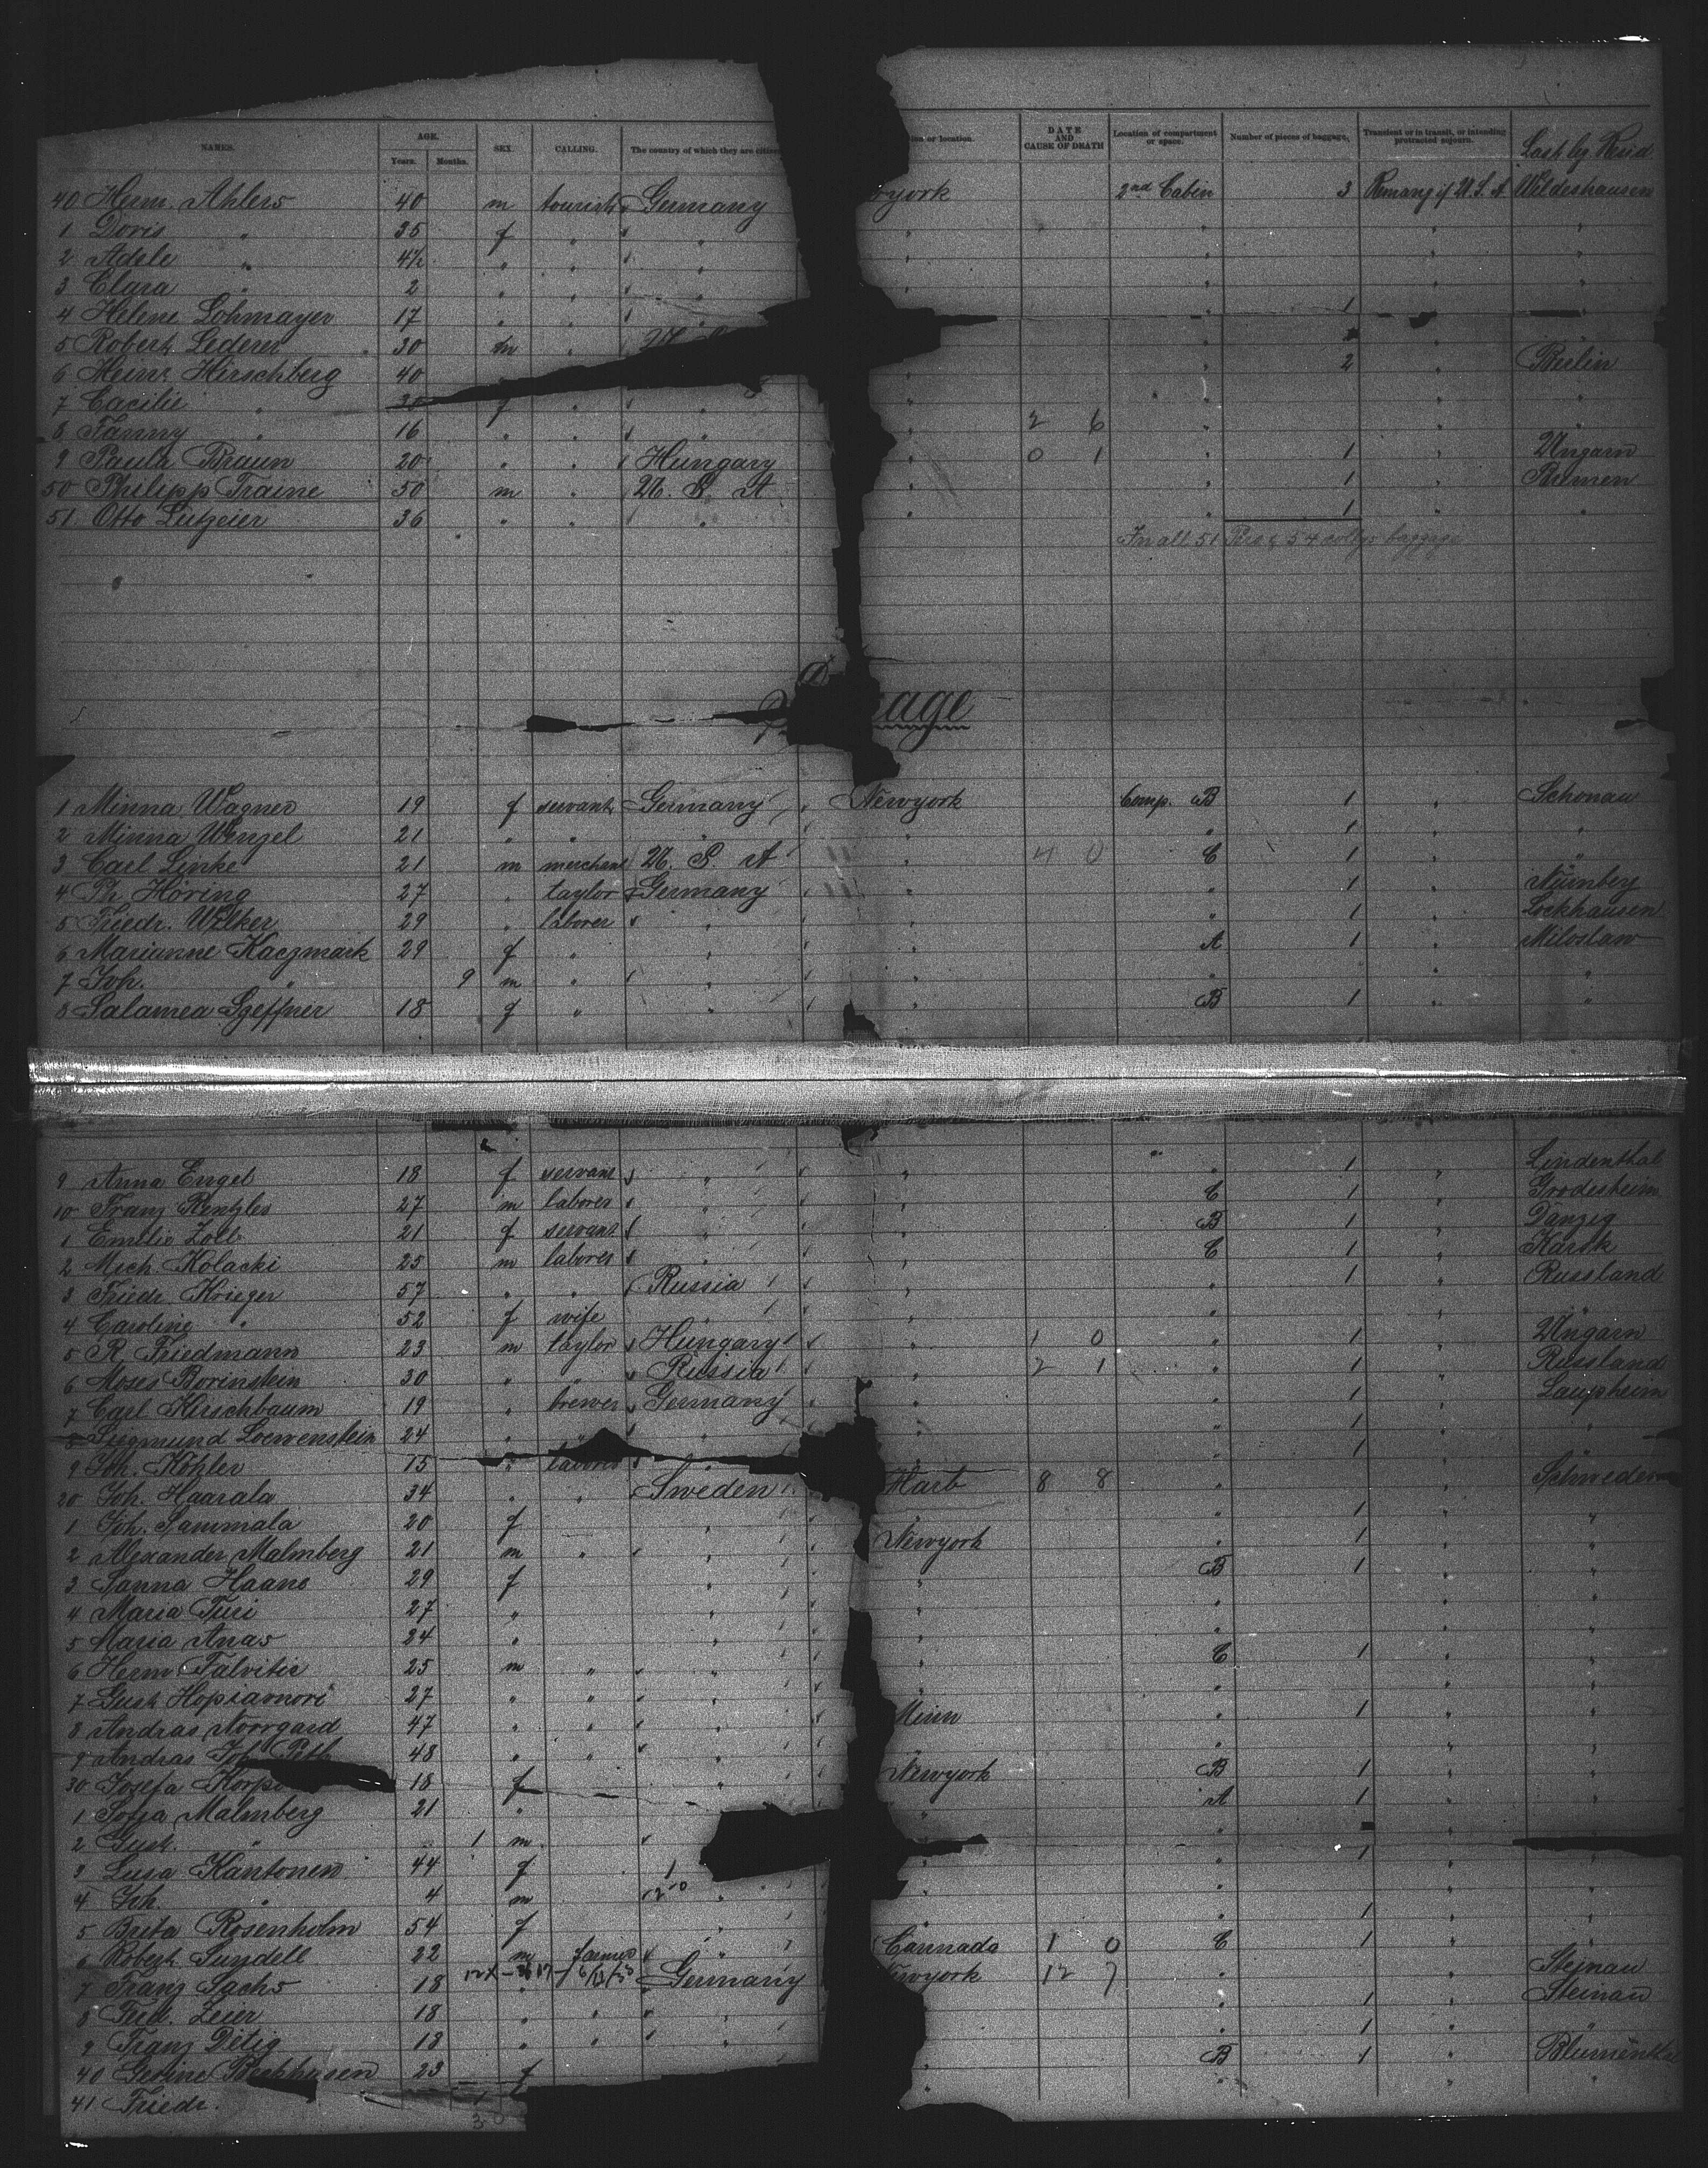 NAMES. AGE. Years. Months. SEX. CALLING. The country of which they are citizens ion or location. DATE AND CAUSE OF DEATH Location of compartment or space. Number of pieces of baggage. Transient or in transit, or intending protracted sojourn. Last leg Resid
40 Herm. Ahlers 40 m tourist Germany york 2nd Cabin 3 U.S.A Wildeshausen
1 Doris " 35 f " " " " " "
2 Adele " 4½ " " " " " " "
3 Clara " 2 " " " " " " "
4 Helene Lohmayer 17 " " " " " 1 " "
5 Robert Lederer 30 m " " " "
6 Heinr. Hirschberg 40 " " 2 " Berlin
7 Cacilie " 30 f " " " " " "
8 Fanny " 16 " " " " 2 6 " " "
9 Paula Braun 20 " " Hungary " 0 1 " 1 " Ungarn
50 Philipp Traine 50 m " U. S. A " " 1 " Bremen
51 Otto Lutzeier 36 " " " " 1 " "
In all 51 Pers & 54 collys baggage
age
1 Minna Wagner 19 f servant Germany Newyork Comp. B 1 " Schonau
2 Minna Wenzel 21 " " " " " 1 " "
3 Carl Linke 21 m merchant U. S. A " 4 0 C 1 " "
4 Ph. Höring 27 " taylor Germany " " 1 " Nürnberg
5 Friedr. Wilker 29 " laborer " " " 1 " Lockhausen
6 Marianne Kaczmark 29 f " " " A 1 " Miloslaw
7 Joh. " 9 m " " " " " "
8 Salamea Szeffner 18 f " " " B 1 " "
9 Anna Engel 18 f servant " " " 1 " Lindenthal
10 Franz Rentzler 27 m laborer " " C 1 " Grodesheim
1 Emilie Zoll 21 f servant " " B 1 " Danzig
2 Mich. Kolacki 25 m laborer " " C 1 " Karsk
3 Friedr. Krieger 57 " " Russia " " 1 " Russland
4 Caroline " 52 f wife " " " " "
5 R. Friedmann 23 m taylor Hungary " 1 0 " 1 " Ungarn
6 Moses Borinstein 30 " " Russia " 2 1 " 1 " Russland
7 Carl Hirschbaum 19 " brewer Germany " " 1 " Laupheim
8 Siegmund Loewenstein 24 " " " " " 1 " "
9 Joh. Köhler 15 " laborer " " 1 "
20 Joh. Haarala 34 " " Sweden 8 8 " " Schweden
1 Joh. Sammala 20 f " " " 1 " "
2 Alexander Malmberg 21 m " " Newyork " 1 " "
3 Sanna Haano 29 f " " B 1 " "
4 Maria Turi 27 " " " " " "
5 Maria Anas 24 " " " " " "
6 Herm. Talvitie 25 m " " " C 1 " "
7 Gust. Hopiavuori 27 " " " " " " "
8 Andras Norrgard 47 " " " Minn " 1 " "
9 Andras Joh. 48 " " " " " "
30 Josefa 18 f " Newyork B 1 " "
1 Sofja Malmberg 21 " " A 1 " "
2 Gust. " 1 m " " "
3 Lusa Kantonen 44 f " " 1 " "
4 Joh. " 4 m " " " " "
5 Brita Rosenholm 54 f " " 1 " "
6 Robert Sundell 22 m farmer " Cannada 1 0 C 1 " "
7 Franz Sachs 18 " Germany wyork 12 7 " " Steinau
8 Ferd. Zeier 18 " " " " 1 " Steinau
9 Franz Ditig 18 " " " " 1 "
40 Gesine 23 f " B 1 " Blumenthal
41 Friedr. " " " "